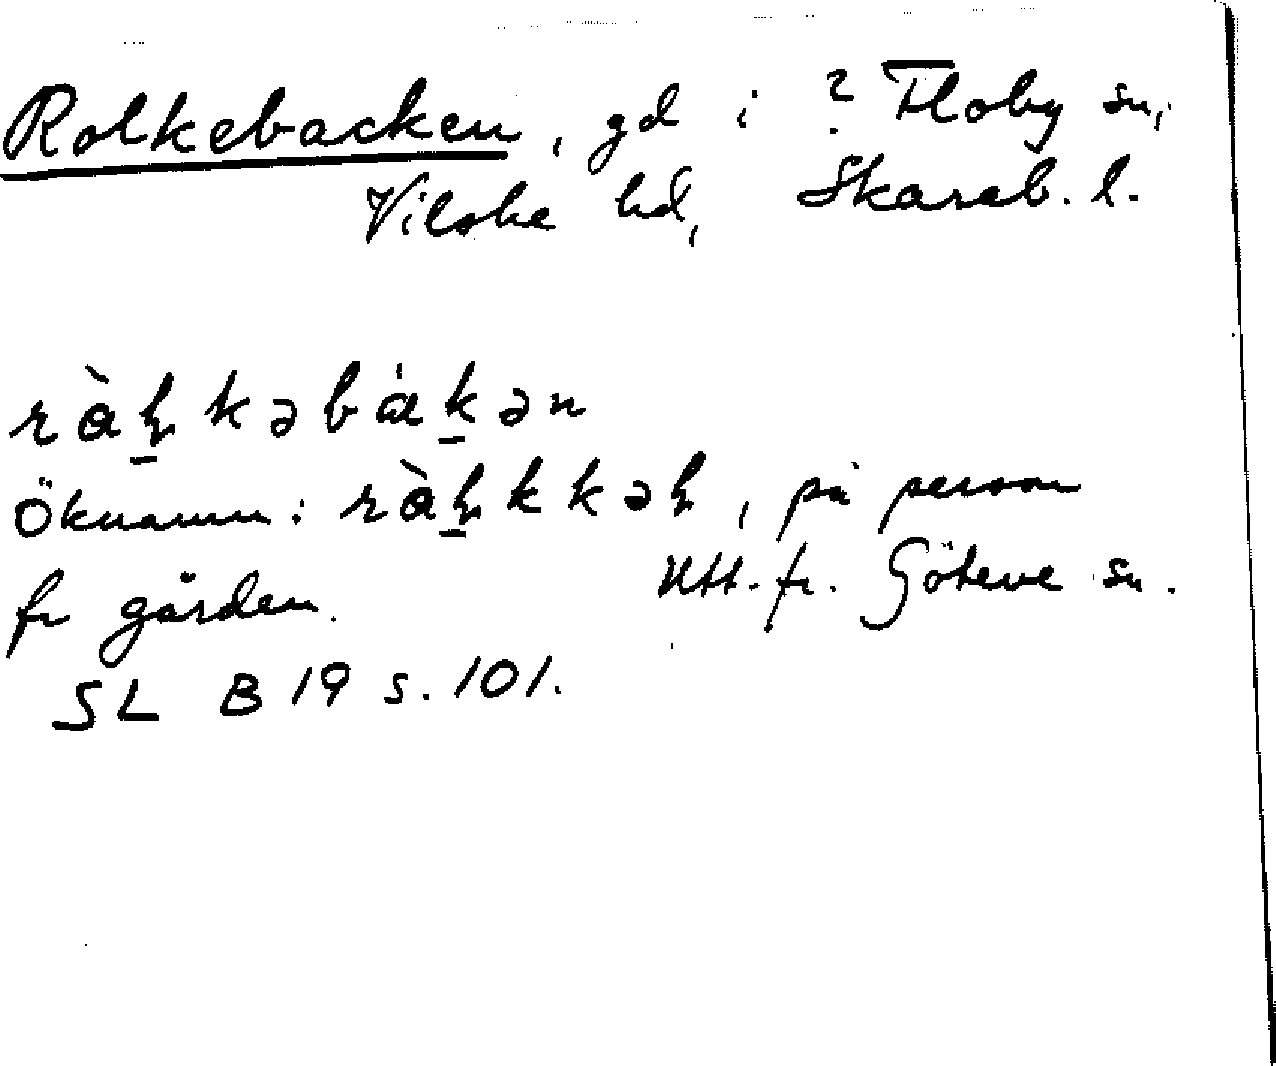 Rolkebacken, gd i ? Floby sn,
Vilske hd, Skarab. l.
ràl̠kəbák̠ən
Öknamn: ràl̠kkəl, på person
fr gården. Utt. fr. Göteve sn.
SL B 19 s. 101.